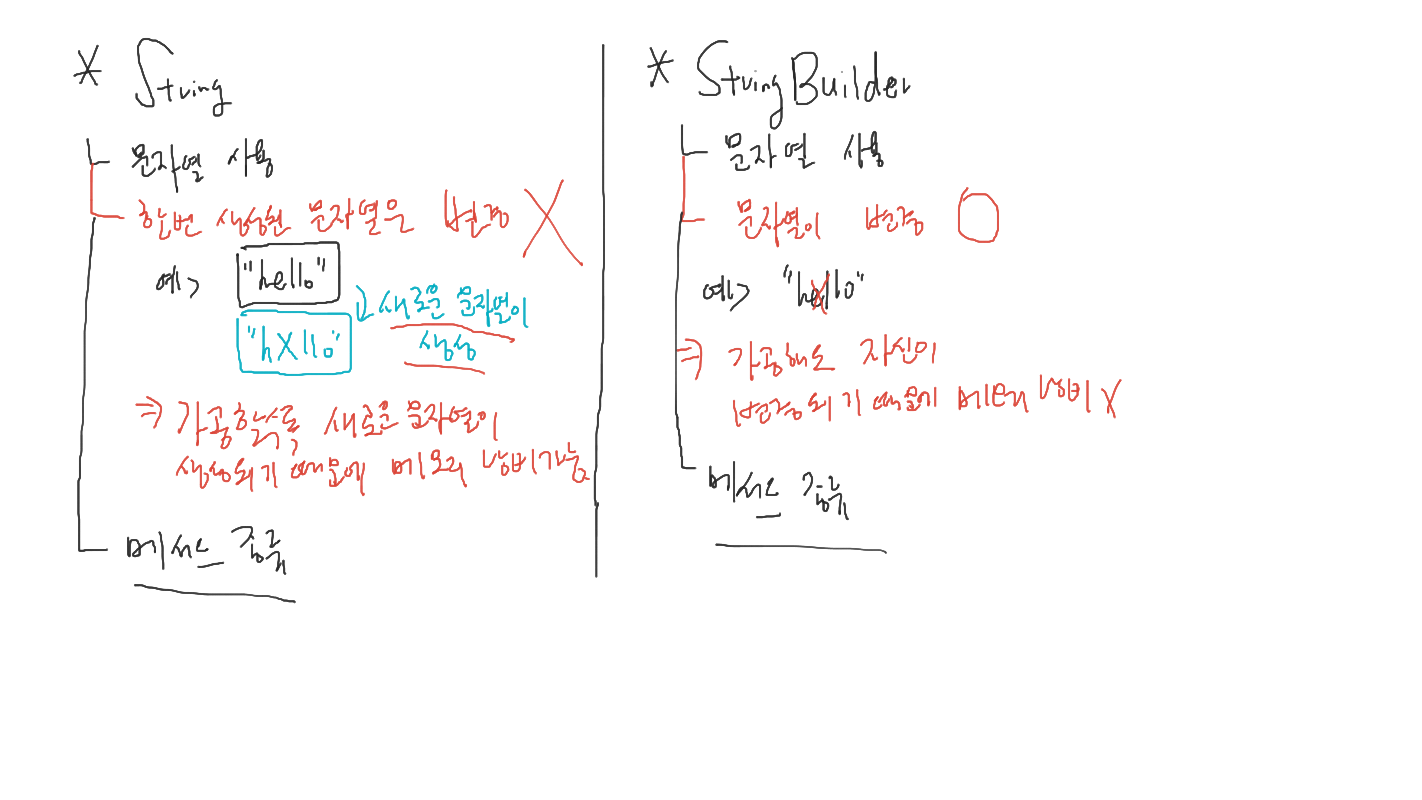 * String
문자열 사용
한번 생성한 문자열은 변경 X
예> "hello"
"hXllo"
새로운 문자열이
생성
⇒ 가공할수록 새로운 문자열이
생성되기 때문에 메모리 낭비가능
메서드 종류
* StringBuilder
문자열 사용
문자열이 변경 O
예> "hello"
⇒ 가공해도 자신이
변경되기 때문에 메모리 낭비 X
메서드 종류